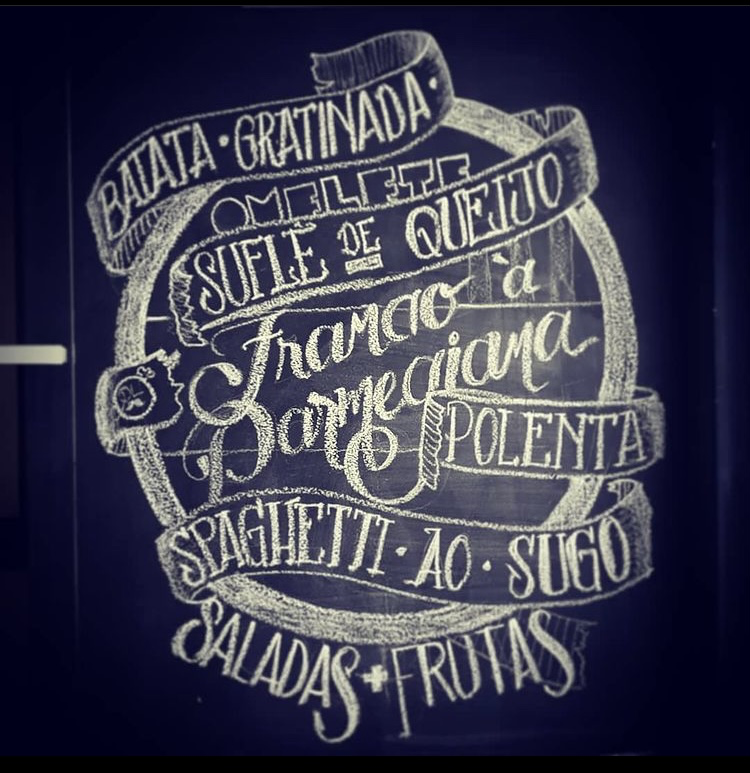 BATATA · GRATINADA ·
OMELETE
SUFLÊ DE QUEIJO
Frango à
Parmegiana
POLENTA
SPAGHETTI · AO · SUGO
SALADAS + FRUTAS